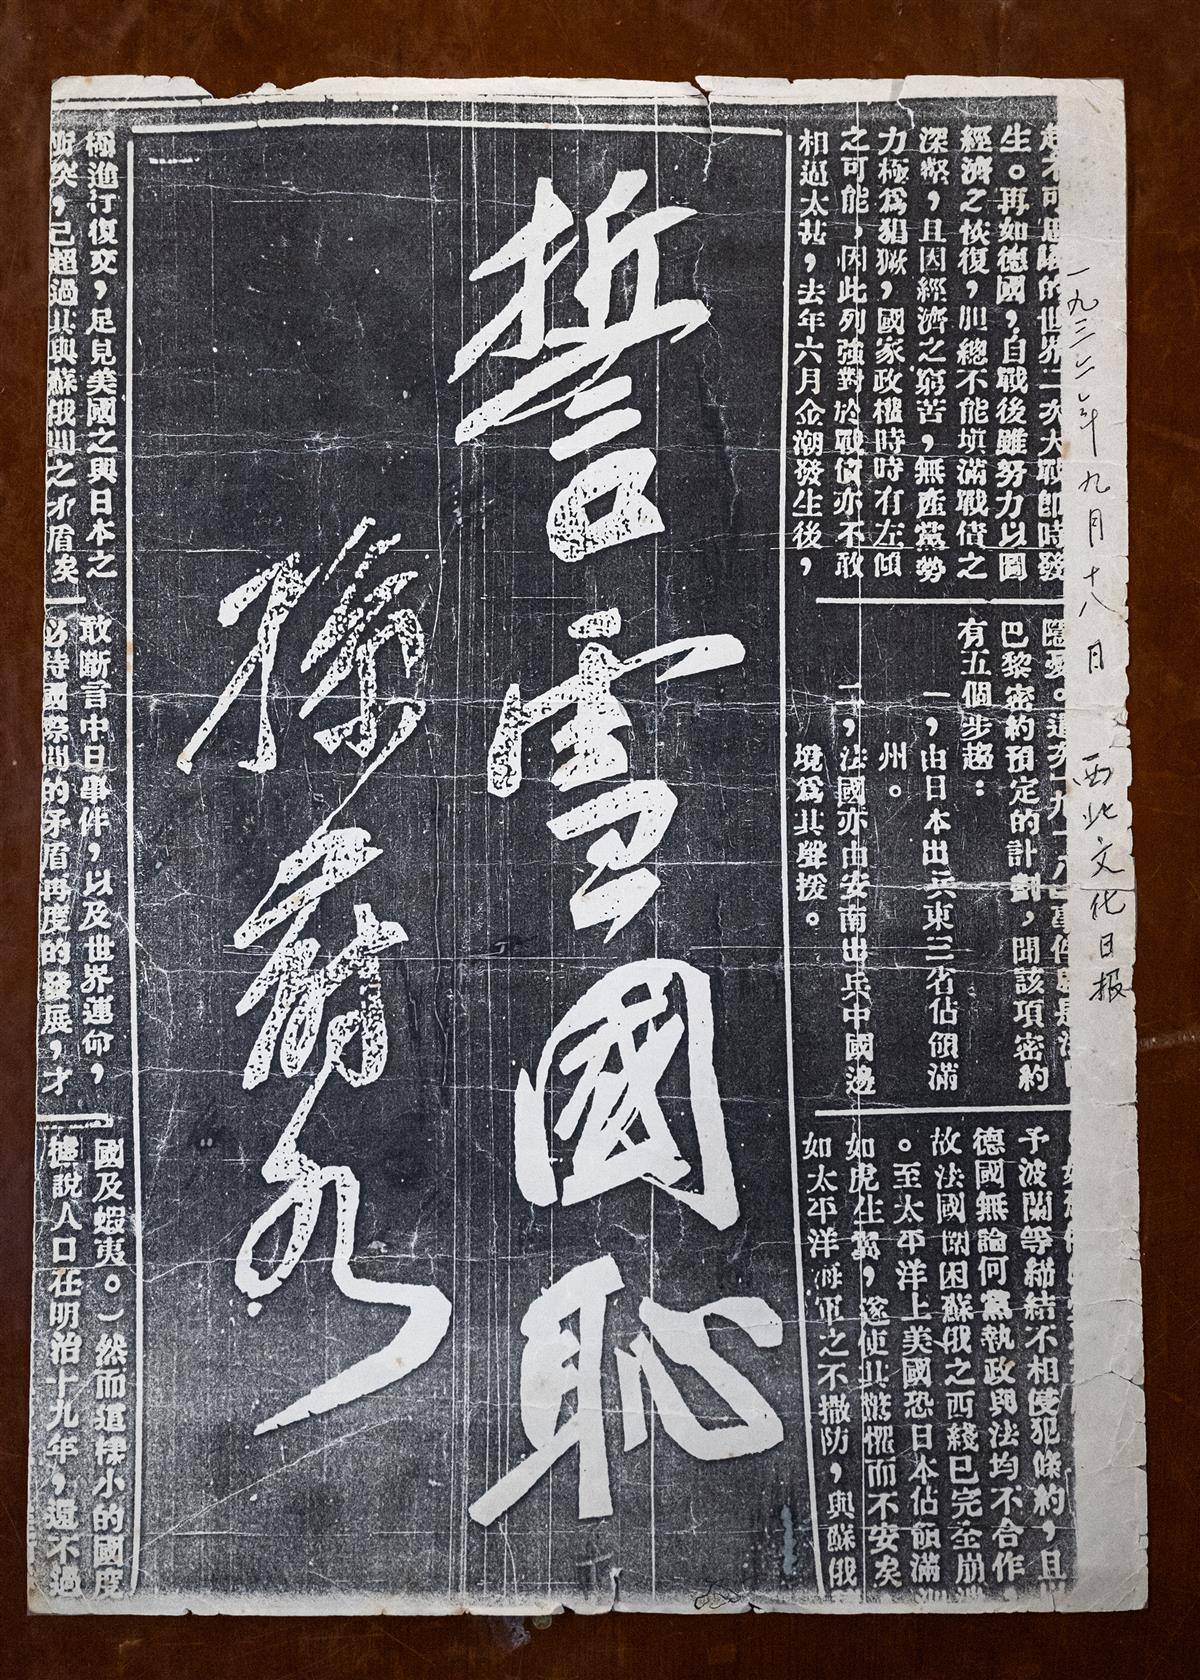 一九三二年九月十八日 西北文化日报
不可思議的世界二次大戰即時發
生。再如德國,自戰後雖努力以圖
經濟之恢復,但總不能填滿戰債之
深壑,且因經濟之窮苦,無產黨勢
力極爲猖獗,國家政權時時有左傾
之可能,因此列強對於戰債亦不敢
相逼太甚,去年六月金潮發生後,
隱憂。這次九一八事件
巴黎密約預定的計劃,聞該項密約
有五個步趨:
一,由日本出兵東三省佔領滿
州。
二,法國亦由安南出兵中國邊
境爲其聲援。
予波蘭等締結不相侵犯條約,且
德國無論何黨執政與法均不合作,
故法國圍困蘇俄之西綫已完全崩潰
。至太平洋上美國恐日本佔領滿洲
如虎生翼,遂使其驚懼而不安矣
如太平洋海軍之不撤防,與蘇俄
誓雪國恥
孫蔚如
極進行復交,足見美國之與日本之
衝突,已超過其與蘇俄間之矛盾矣
敢斷言中日事件,以及世界運命,
必待國際間的矛盾再度的發展,才
國及蝦夷。)然而這樣小的國度
據說人口在明治十九年,還不過